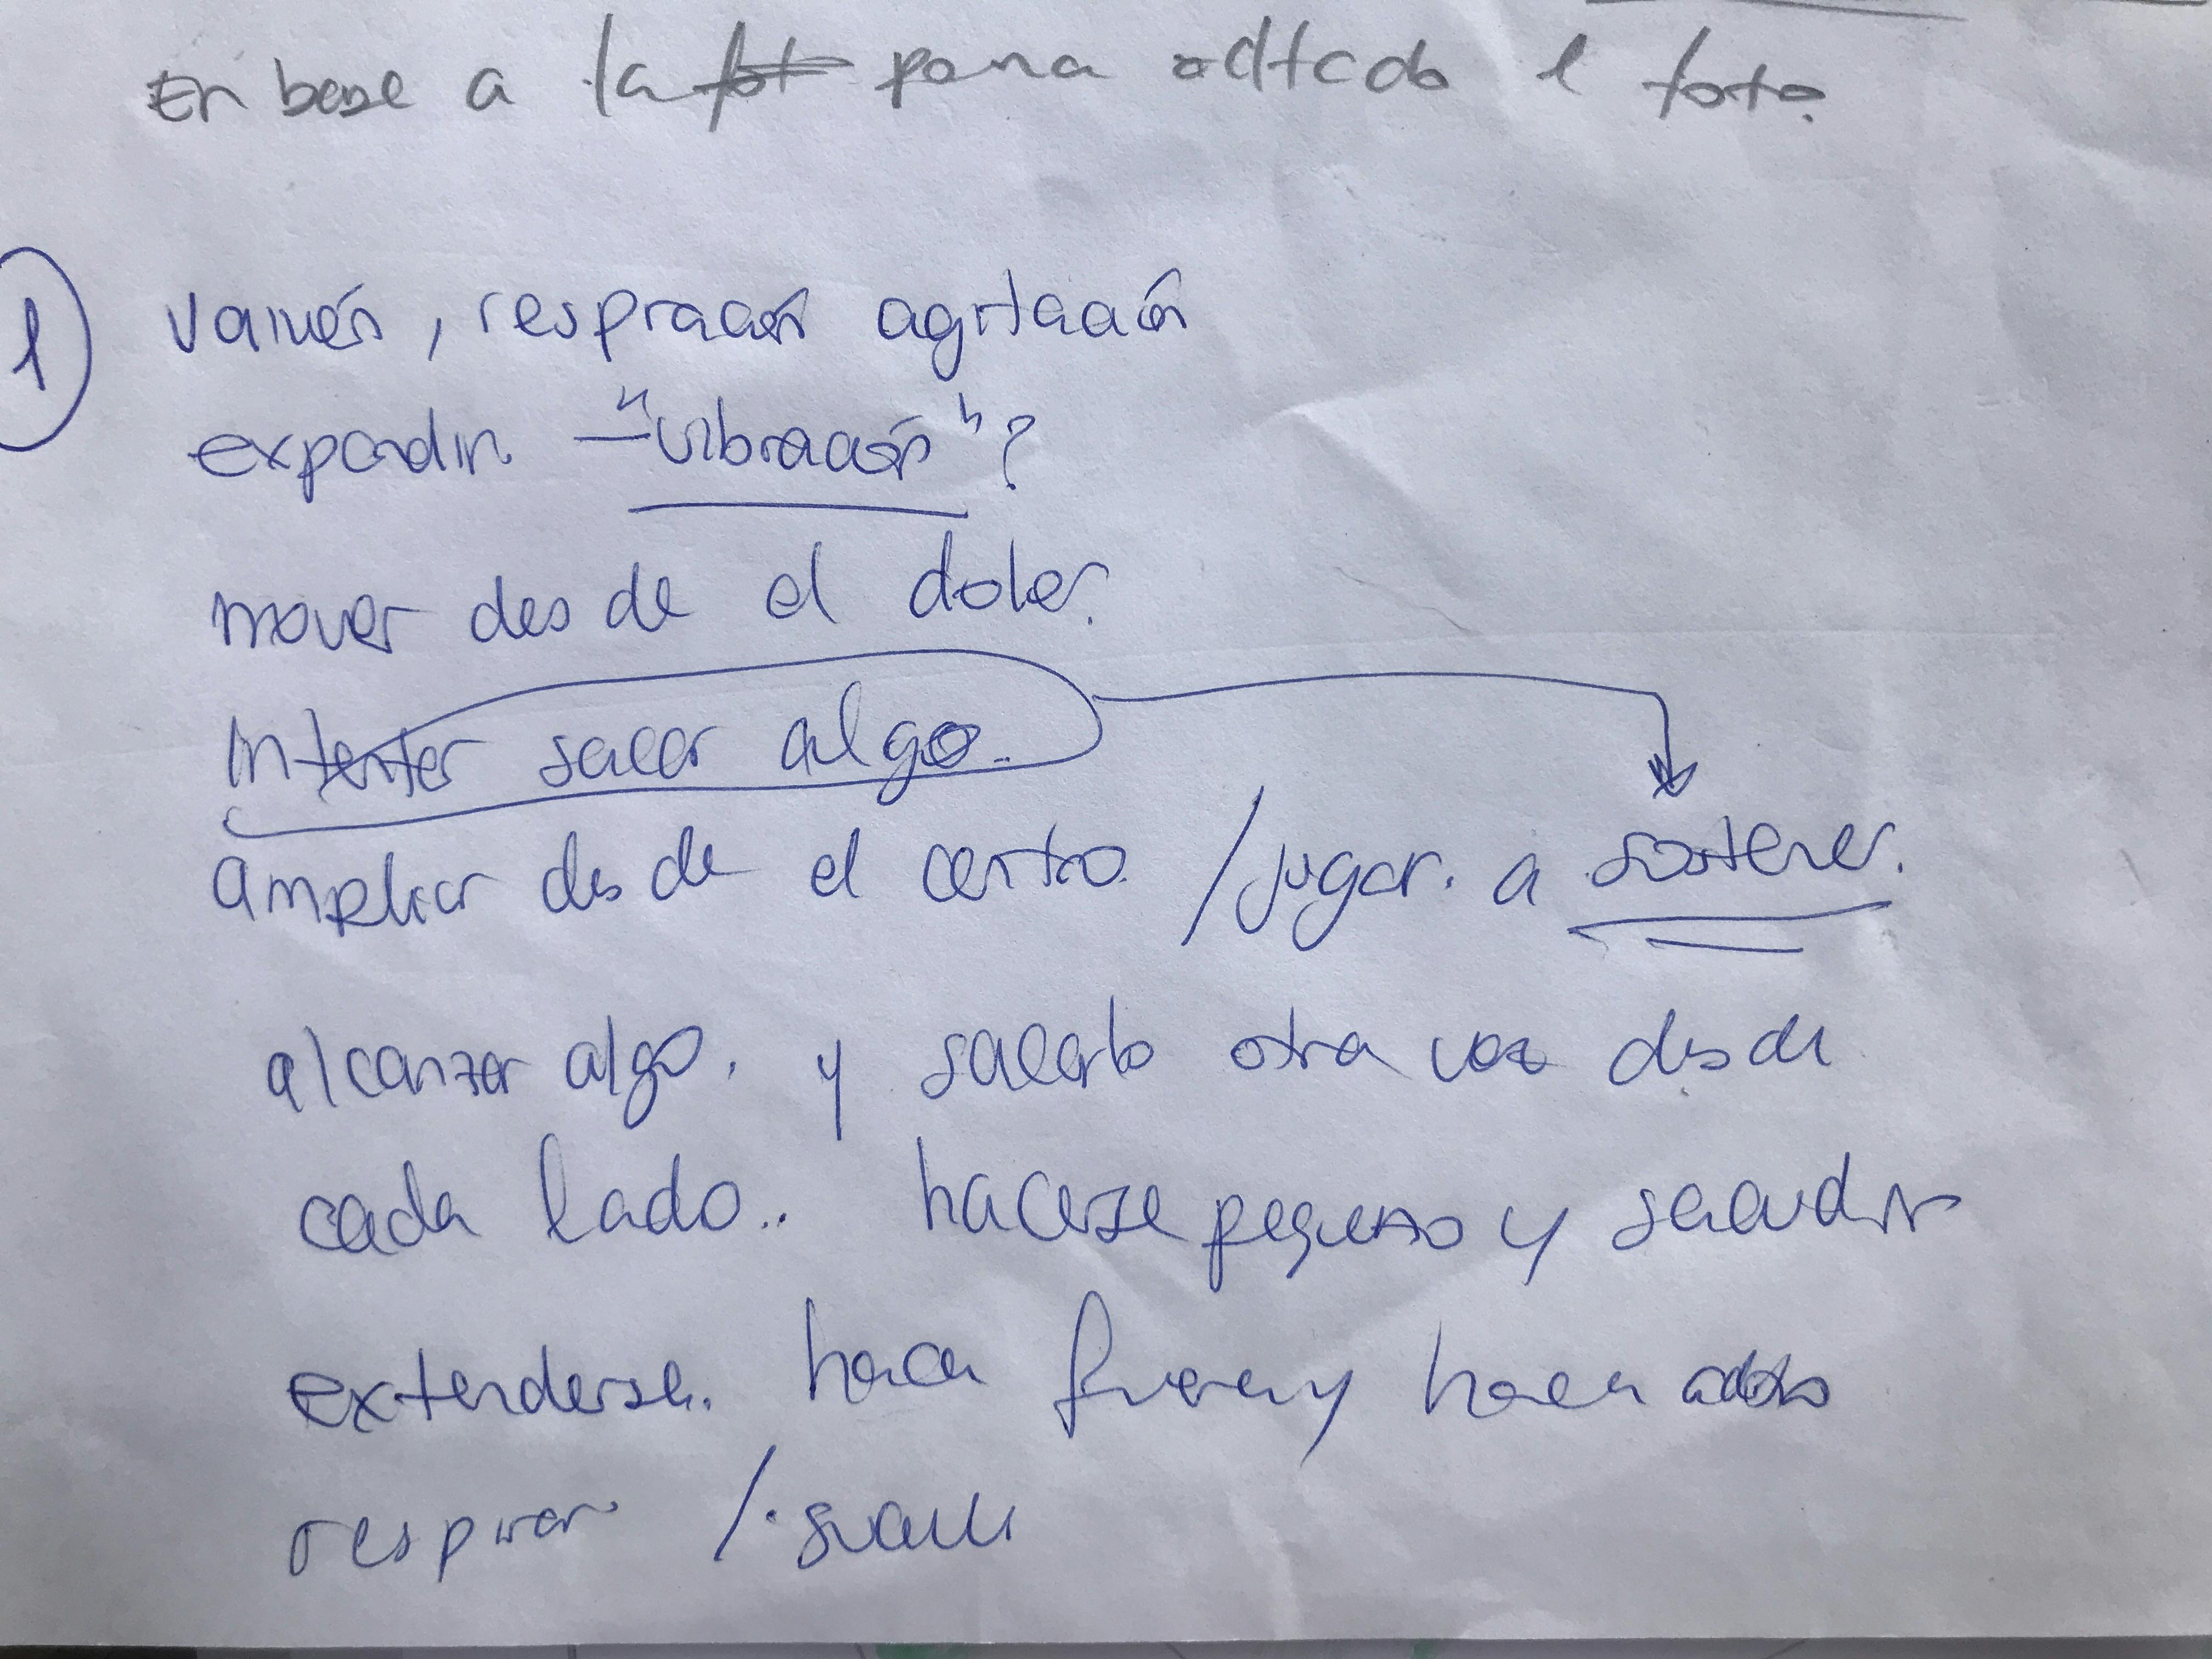 En base a la pena
① Vaivén, respiración agitación
expandir – "vibración"?
mover desde el dolor.
Intentar sacar algo.
ampliar desde el centro. / jugar. a sostener.
alcanzar algo. y sacarlo otra vez desde
cada lado.. hacerse pequeño y sacudir
extenderse. hacia fuera y hacia adentro
respirar / suave